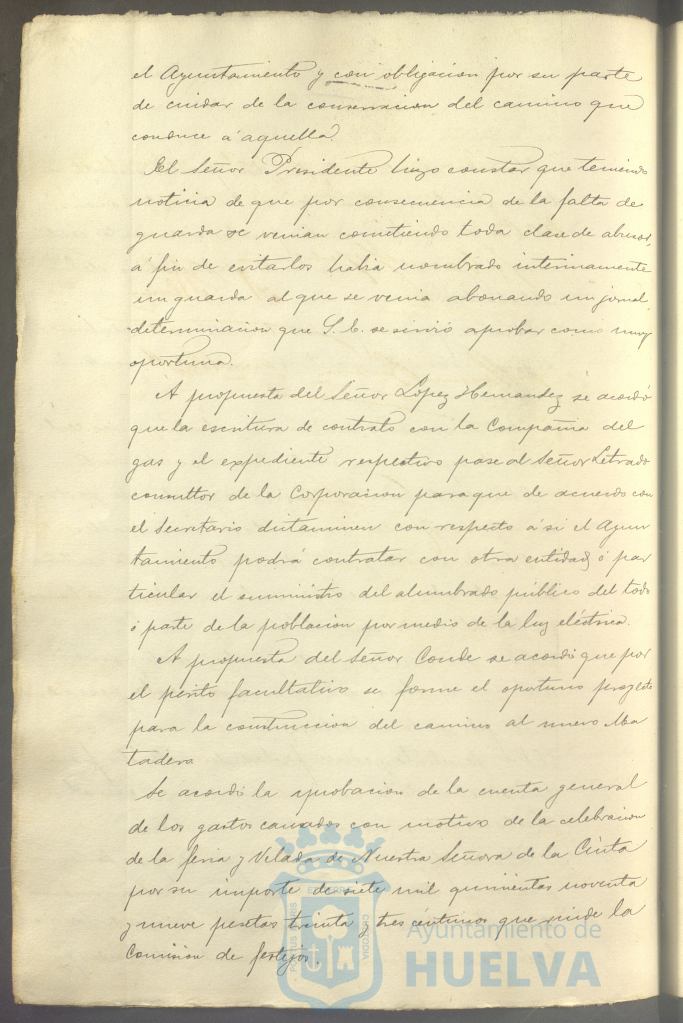 el Ayuntamiento y con obligacion por su parte
de cuidar de la conservacion del camino que
conduce á aquella.
El Señor Presidente hizo constar que teniendo
noticia de que por consecuencia de la falta de
guarda se venian cometiendo toda clase de abusos,
á fin de evitarlos habia nombrado interinamente
un guarda al que se venia abonando un jornal,
determinacion que S. E. se sirvió aprobar como muy
oportuna.
A propuesta del Señor López Hernandez se acordó
que la escritura de contrato con la Compañia del
gas y el expediente respectivo pase al Señor Letrado
consultor de la Corporacion para que de acuerdo con
el Secretario dictaminen con respecto á si el Ayun
tamiento podrá contratar con otra entidad ó par
ticular el suministro del alumbrado público del todo
ó parte de la poblacion por medio de la luz eléctrica.
A propuesta del Señor Conde se acordó que por
el perito facultativo se forme el oportuno proyecto
para la construccion del camino al nuevo Ma
tadero
Se acordó la aprobacion de la cuenta general
de los gastos causados con motivo de la celebracion
de la feria y Velada de Nuestra Señora de la Cinta
por su importe de siete mil quinientas noventa
y nueve pesetas treinta y tres centimos que rinde la
Comision de festejos.
Ayuntamiento de
HUELVA